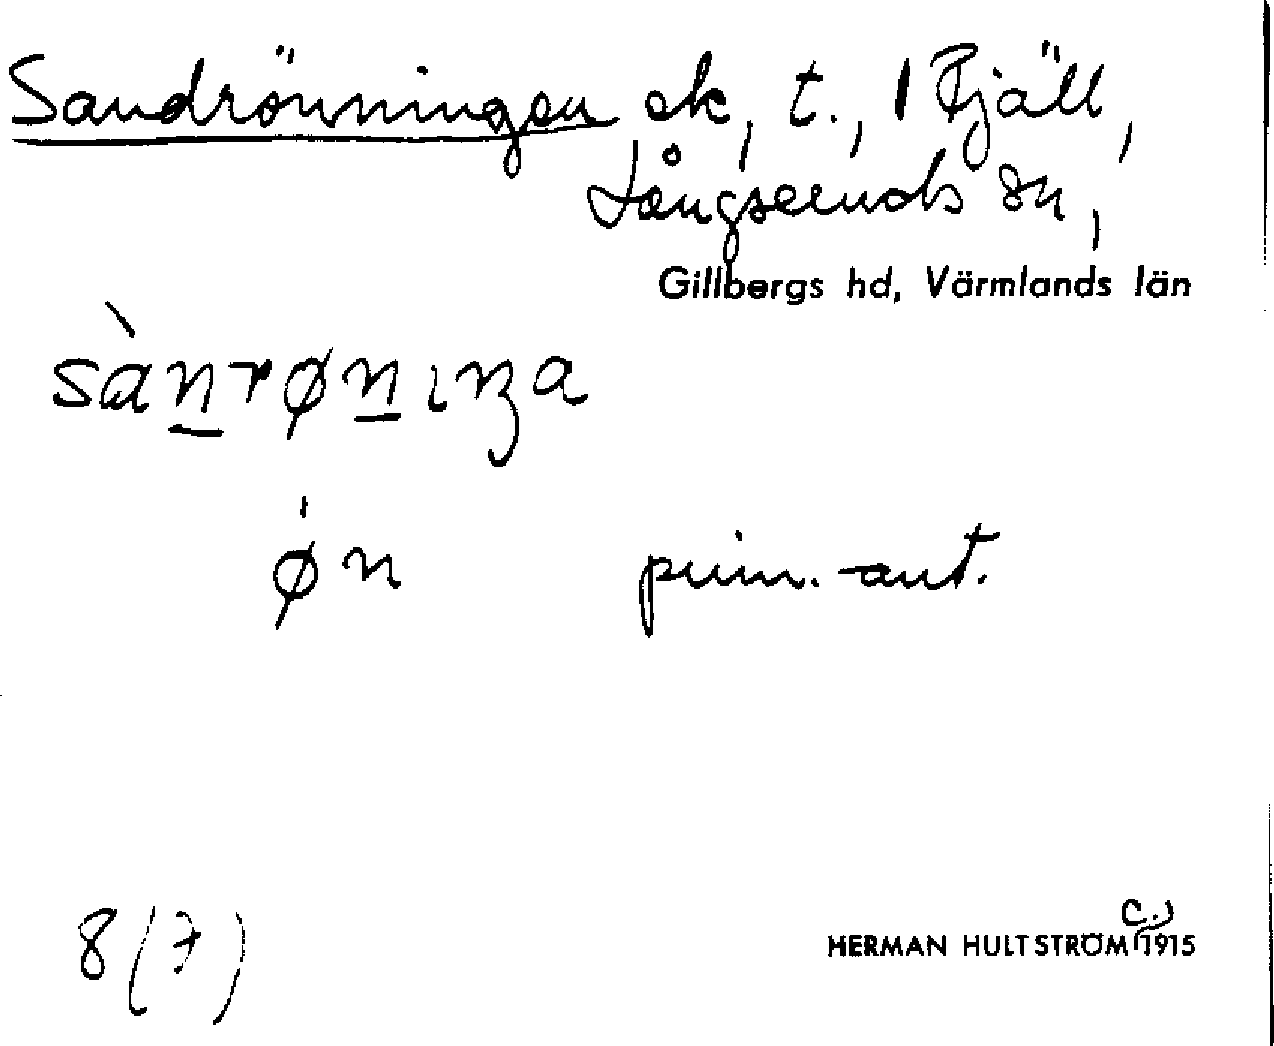 Sandrönningen sk, t., 1 Fjäll,
Långseruds sn,
Gillbergs hd, Värmlands län
sànrønıŋa
øn prim.-ant.
8(7)
HERMAN HULTSTRÖM c.) 1915